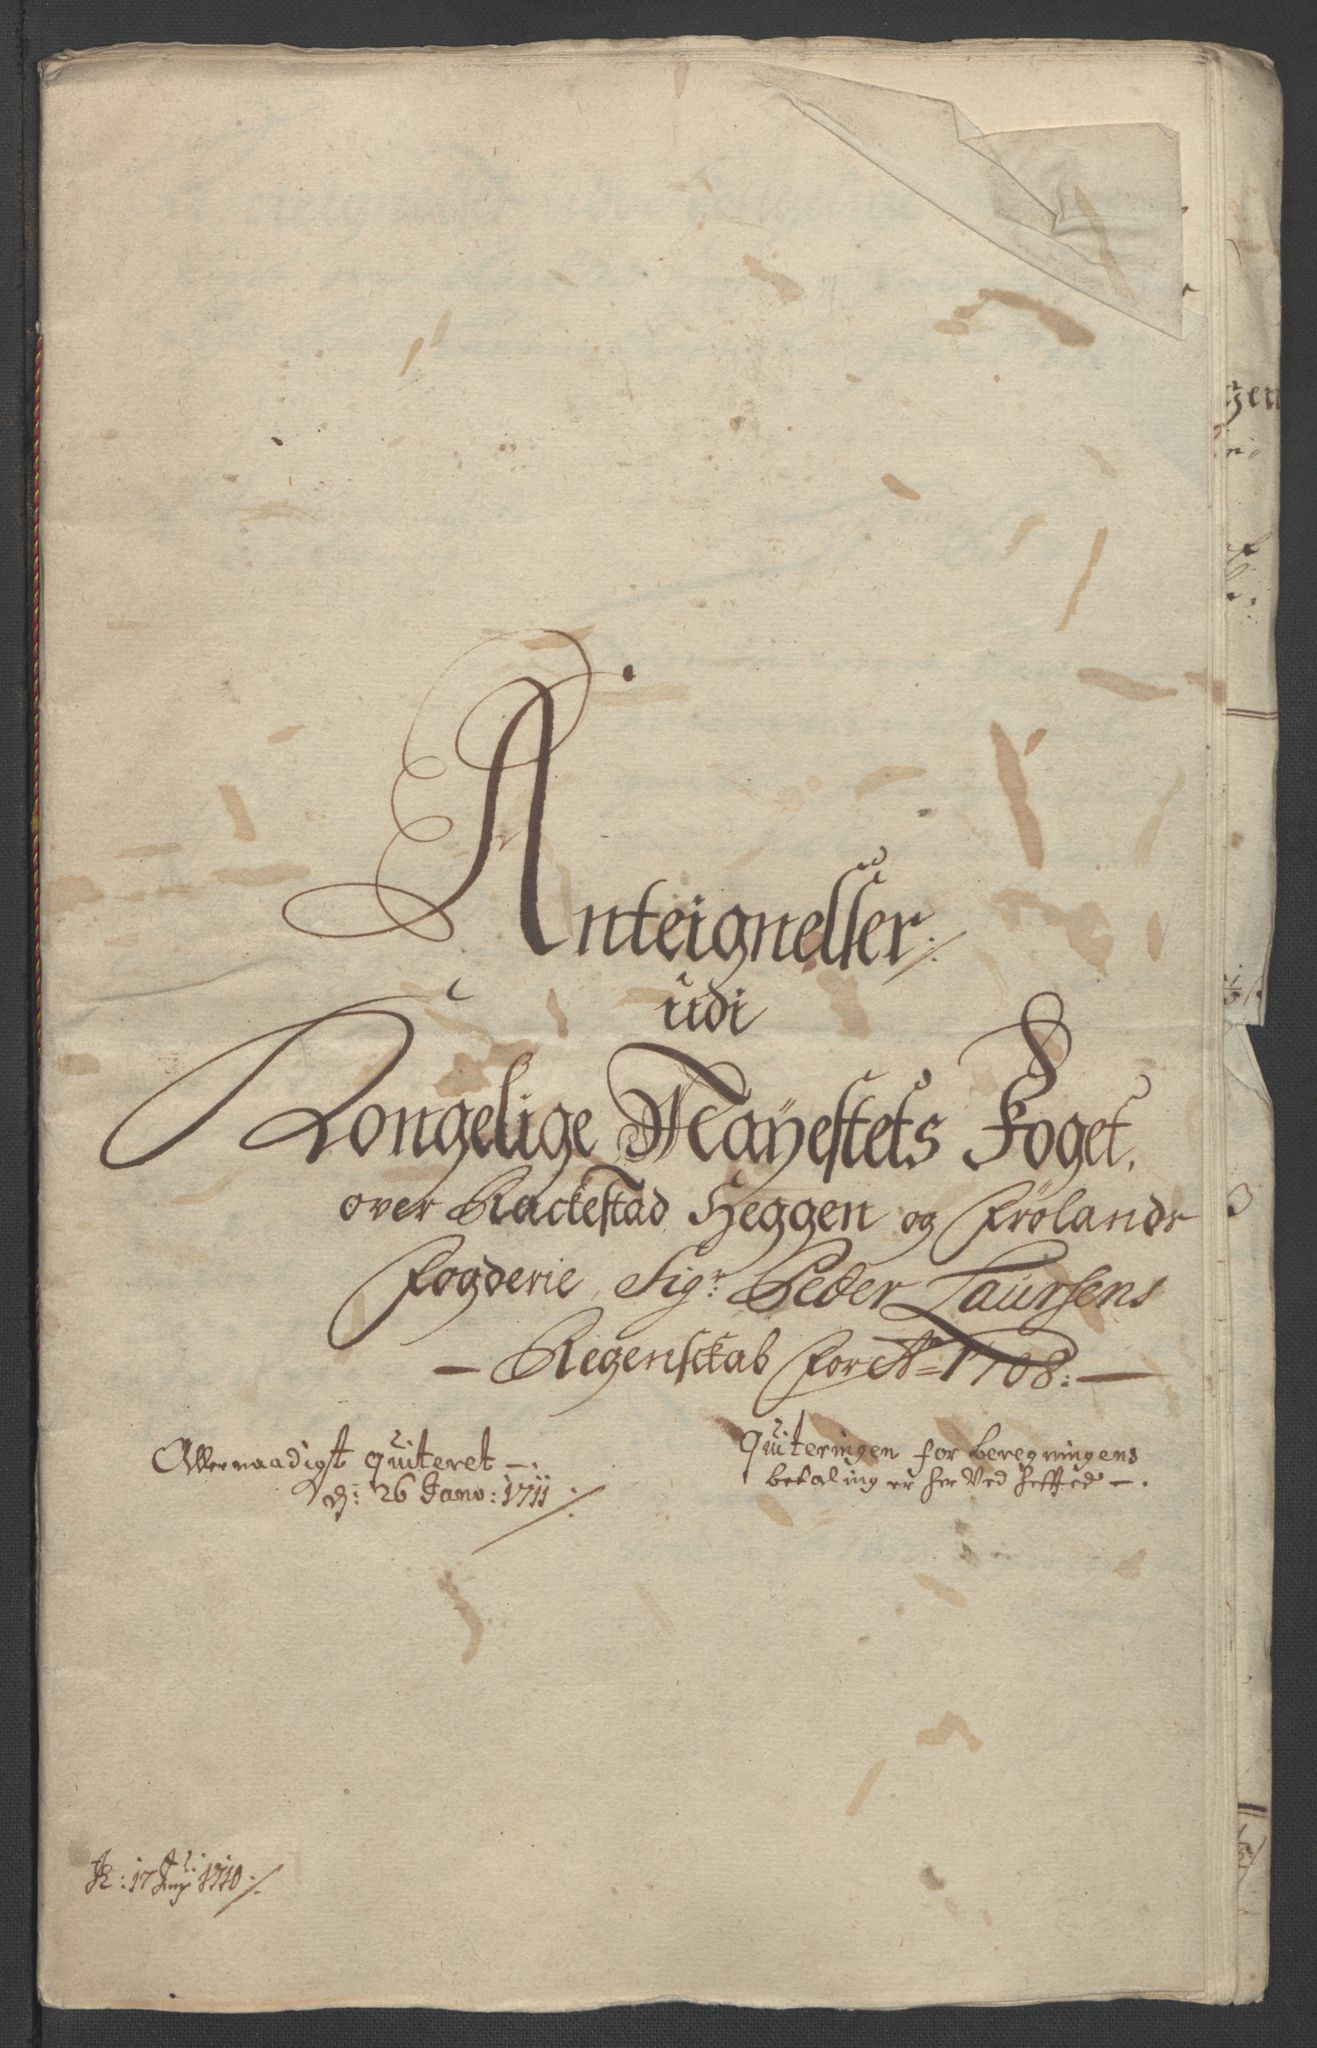 Anteignelser
udi
Kongelige Mayestets Foget,
over Rackestad Heggen og Frölands
Fogderie, Sigr Peder Laursens
— Regenskab for Ao 1708: —
Allernaadigst quiteret —.
d: 26 Janv: 1711
Quiteringen for beregningens
betaling er her Ved heffted —.
R: 17 1710